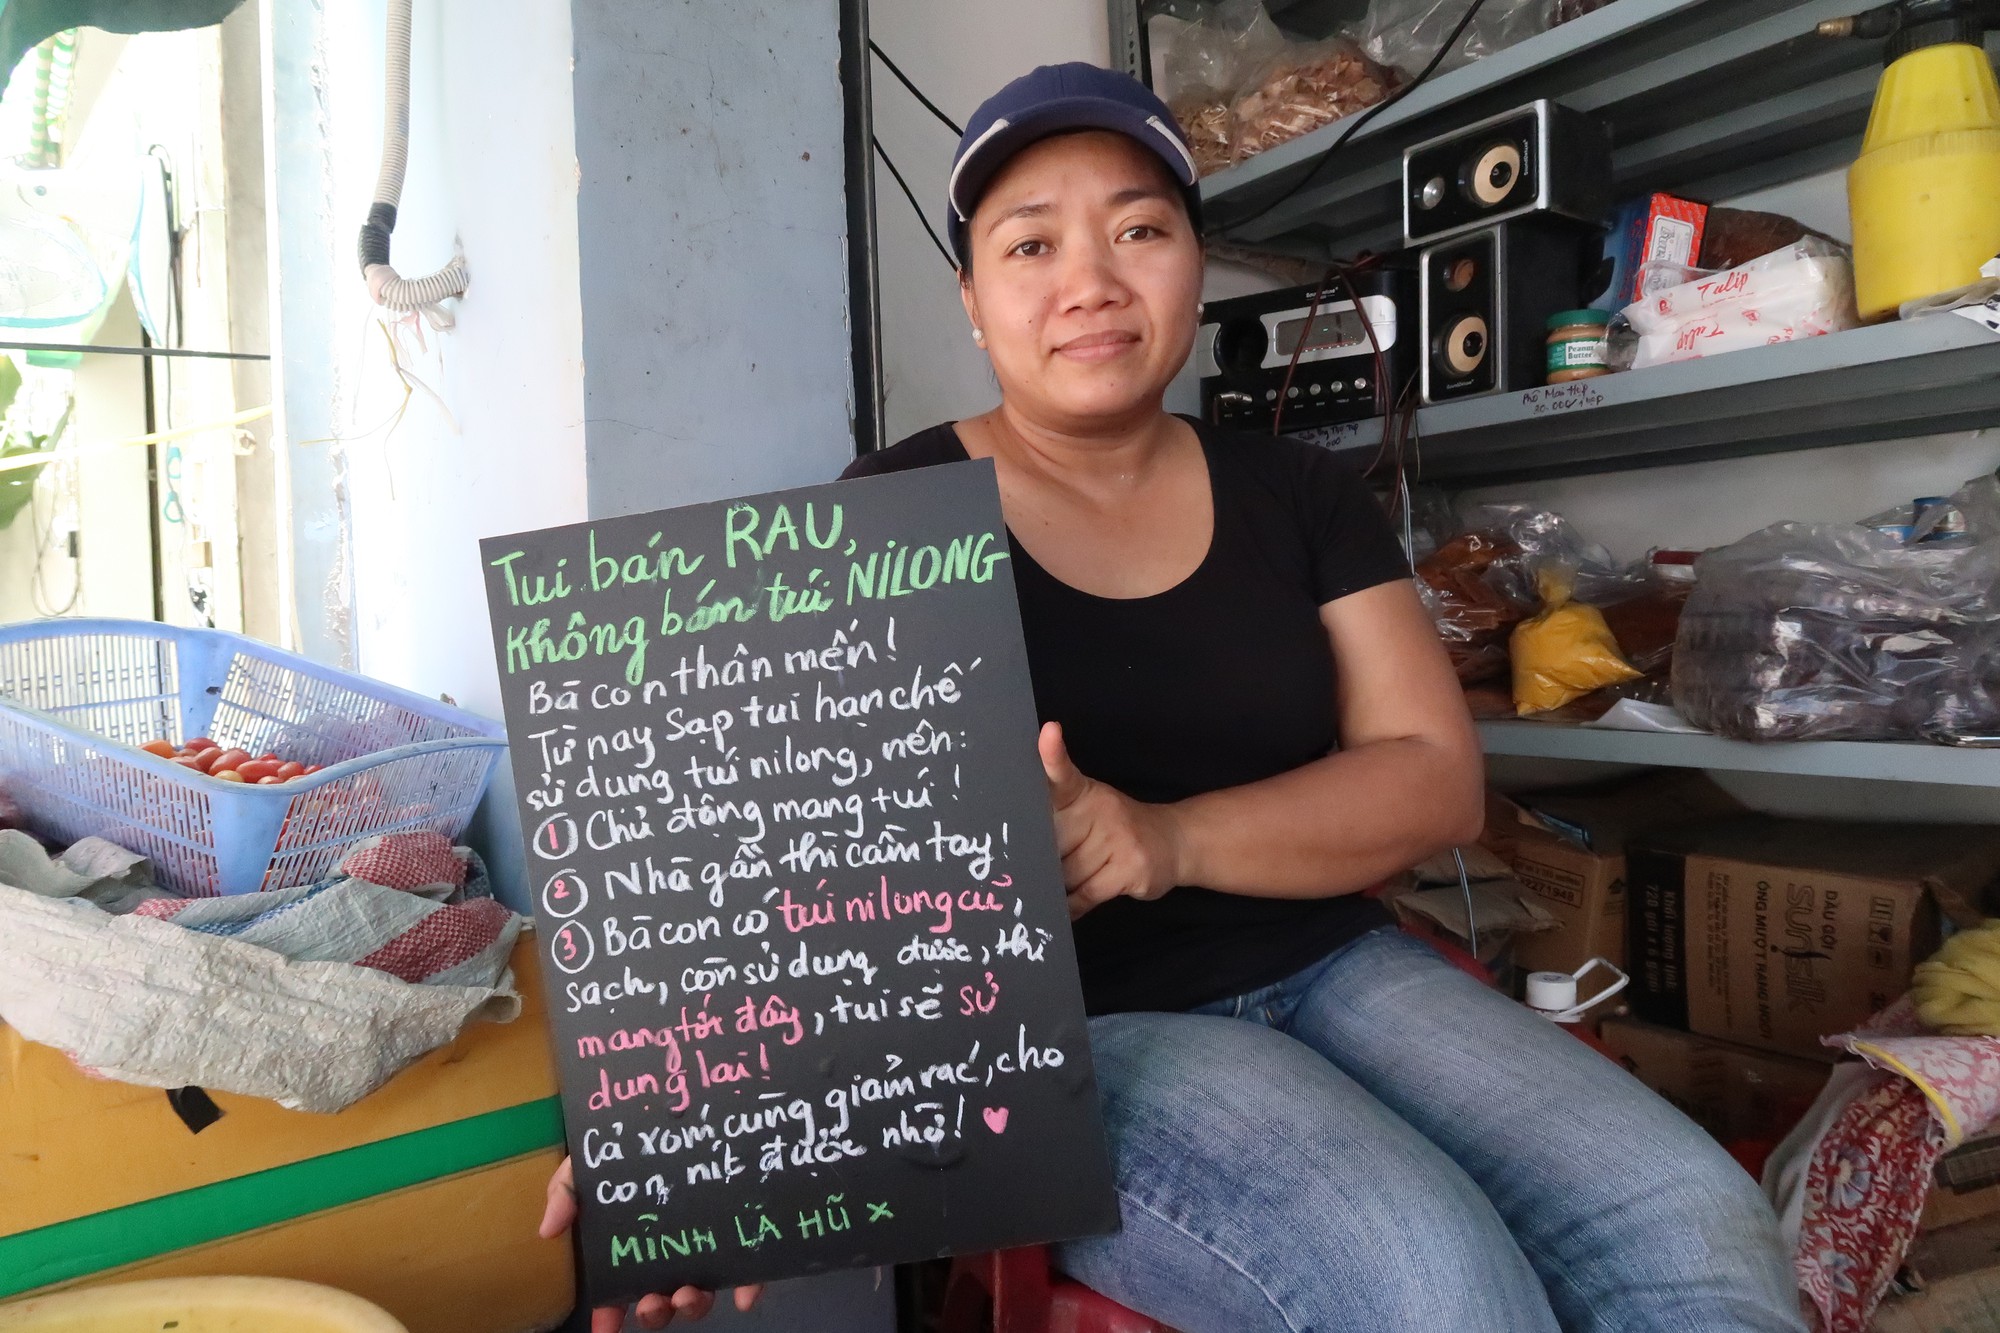 Tui bán RAU,
Không bán túi NILONG
Bà con thân mến!
Từ nay Sạp tui hạn chế
sử dụng túi nilong, nên:
1 Chủ động mang túi!
2 Nhà gần thì cầm tay!
3 Bà con có túi nilong cũ,
sạch, còn sử dụng được, thì
mang tới đây, tui sẽ sử
dụng lại!
Cả xóm cùng giảm rác, cho
con nít được nhờ! ♥
MÌNH LÀ HŨ x
Tulip
Tulip
Peanut
Butter
Phô Mai Hộp
20.000/hộp
SoundMax
DẦU GỘI
sunsilk
ÓNG MƯỢT RẠNG NGỜI
720 gói x 6 gười
Khối lượng tịnh
02271948